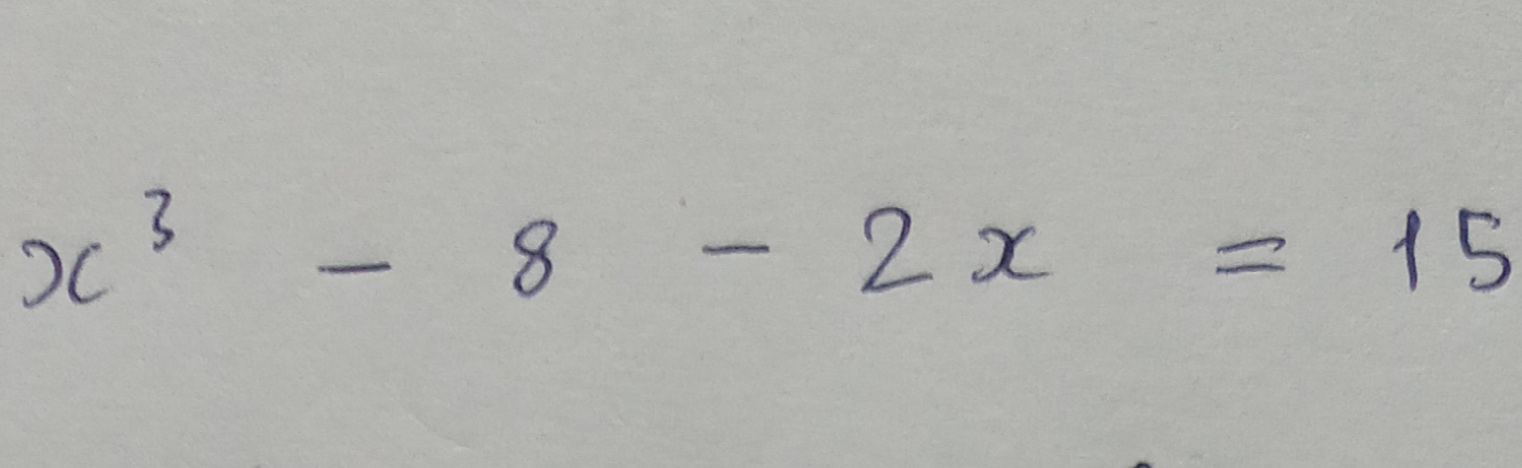 x³ - 8 - 2x = 15